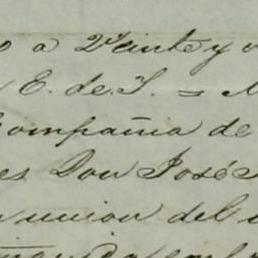 o a Veinte y
E. de S. = 
Compañia de
es Don José
union del